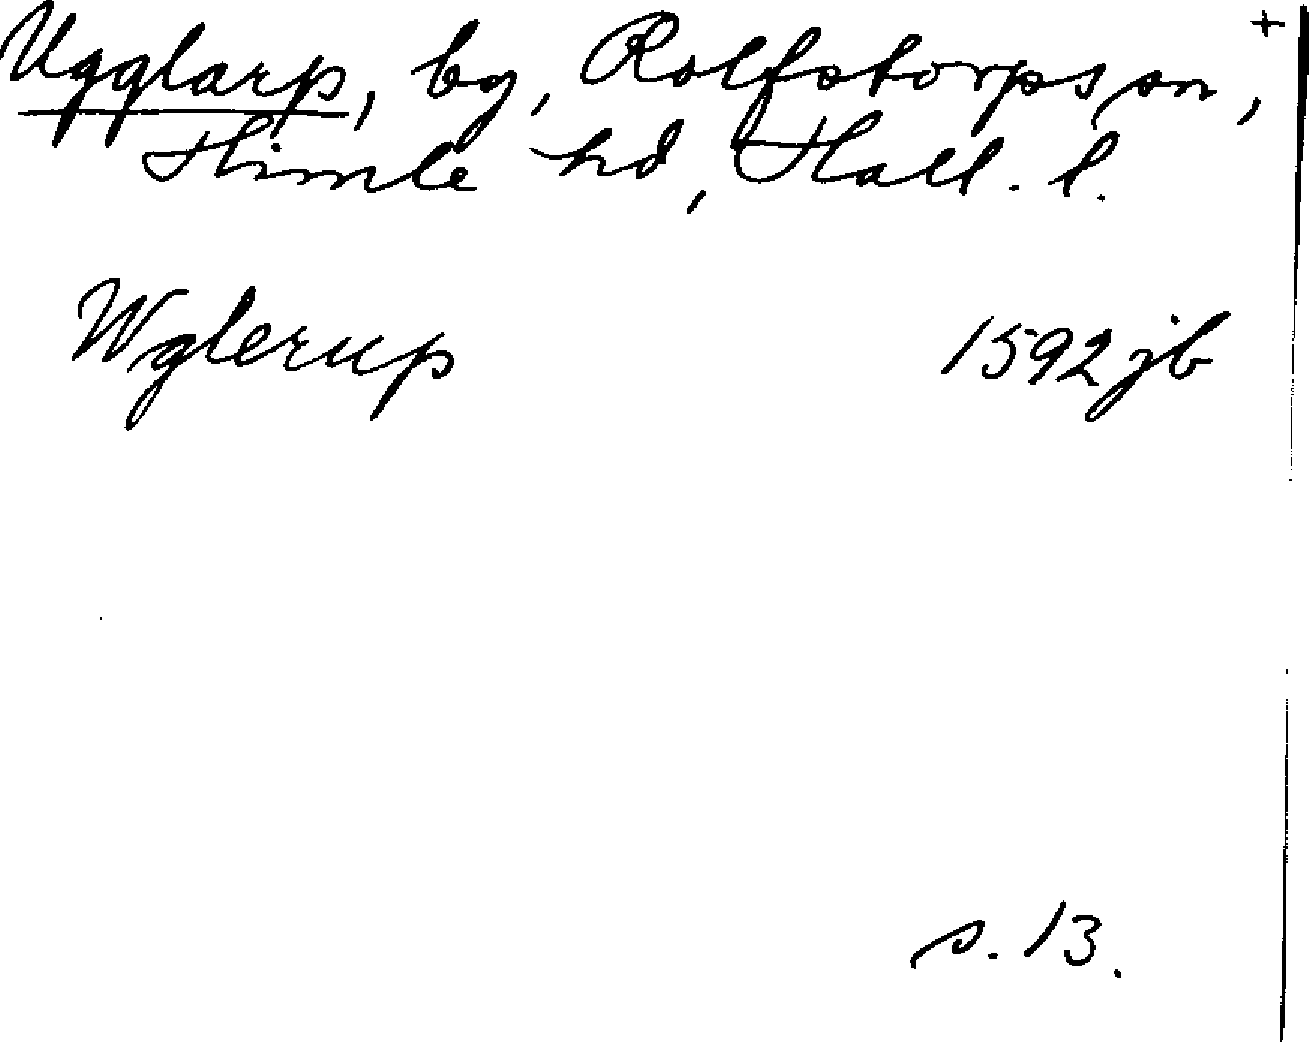 +
Ugglarp, by, Rolfstorps sn,
Himle hd, Hall. l.
Wglerup 1592 jb
s. 13.